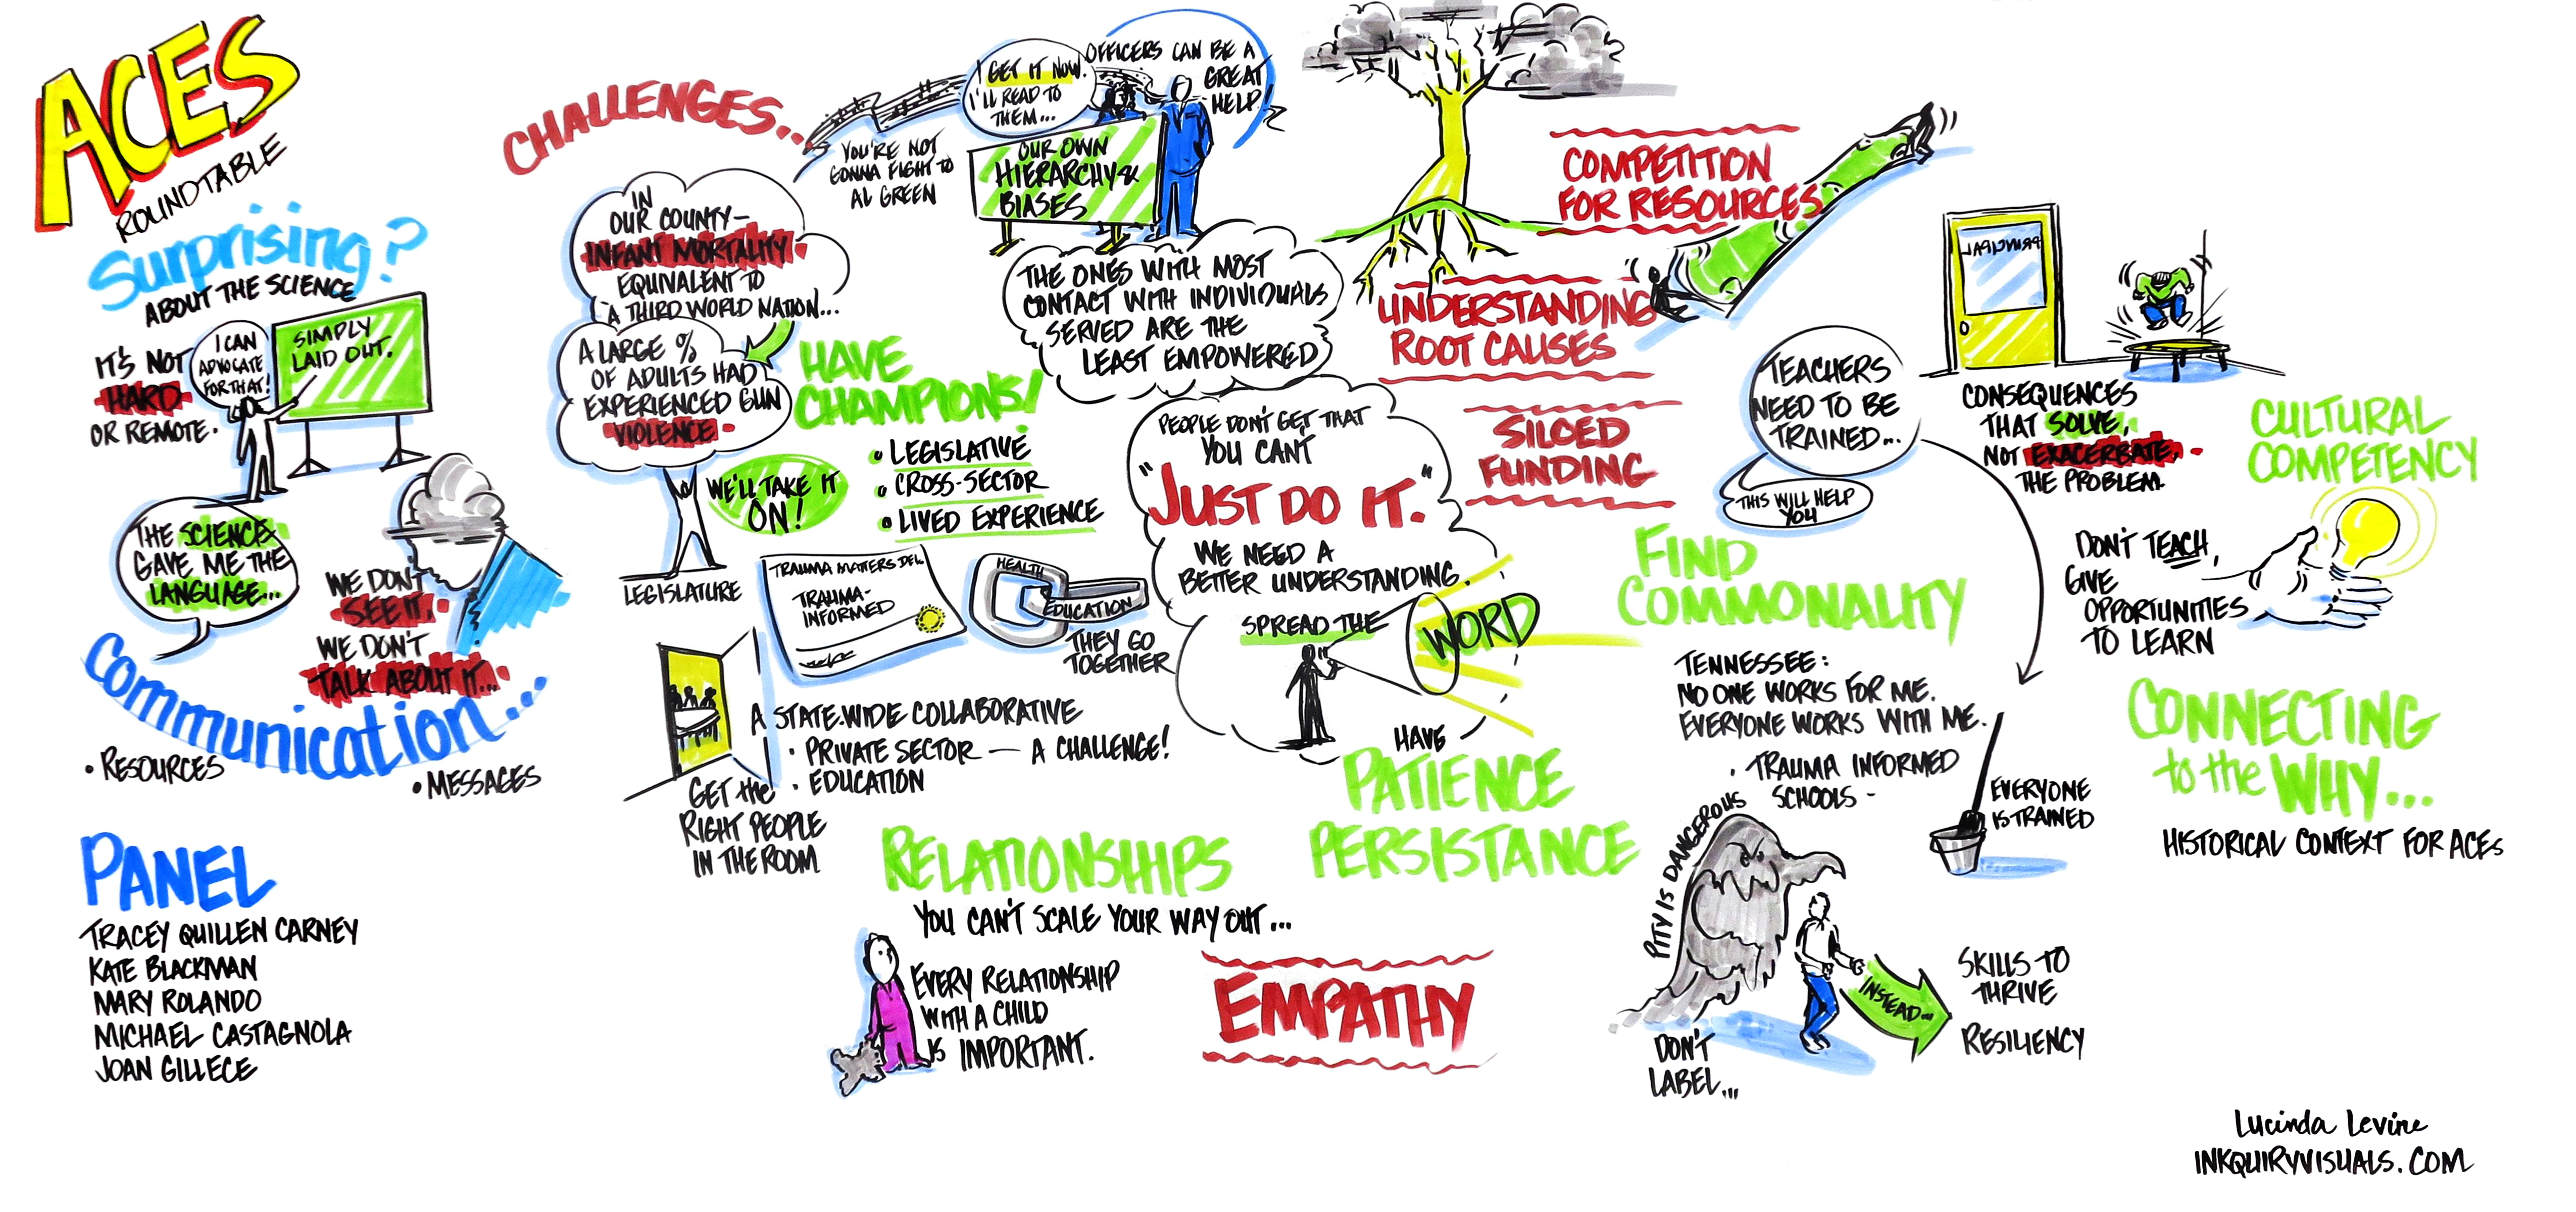 ACES
ROUNDTABLE
Surprising?
ABOUT THE SCIENCE
IT'S NOT
HARD
OR REMOTE.
I CAN
ADVOCATE
FOR THAT!
SIMPLY
LAID OUT.
THE SCIENCE
GAVE ME THE
LANGUAGE...
WE DON'T
SEE IT.
WE DON'T
TALK ABOUT IT...
Communication...
• RESOURCES
• MESSAGES
PANEL
TRACEY QUILLEN CARNEY
KATE BLACKMAN
MARY ROLANDO
MICHAEL CASTAGNOLA
JOAN GILLECE
CHALLENGES...
IN
OUR COUNTY-
INFANT MORTALITY
EQUIVALENT TO
A THIRD WORLD NATION...
A LARGE %
OF ADULTS HAD
EXPERIENCED GUN
VIOLENCE
WE'LL TAKE IT
ON!
LEGISLATURE
HAVE
CHAMPIONS!
• LEGISLATIVE
• CROSS-SECTOR
• LIVED EXPERIENCE
YOU'RE NOT
GONNA FIGHT TO
AL GREEN
I GET IT NOW.
I'LL READ TO
THEM...
OFFICERS CAN BE A
GREAT
HELP.
OUR OWN
HIERARCHY &
BIASES
THE ONES WITH MOST
CONTACT WITH INDIVIDUALS
SERVED ARE THE
LEAST EMPOWERED
TRAUMA MATTERS DEL.
TRAUMA-
INFORMED
HEALTH
EDUCATION
THEY GO
TOGETHER
A STATE-WIDE COLLABORATIVE
• PRIVATE SECTOR — A CHALLENGE!
• EDUCATION
GET the
RIGHT PEOPLE
IN THE ROOM
PEOPLE DON'T GET THAT
YOU CAN'T
"JUST DO IT."
WE NEED A
BETTER UNDERSTANDING.
SPREAD THE
WORD
HAVE
PATIENCE
PERSISTANCE
RELATIONSHIPS
YOU CAN'T SCALE YOUR WAY OUT...
EVERY RELATIONSHIP
WITH A CHILD
IS IMPORTANT.
EMPATHY
COMPETITION
FOR RESOURCES
UNDERSTANDING
ROOT CAUSES
SILOED
FUNDING
TEACHERS
NEED TO BE
TRAINED...
THIS WILL HELP
YOU
PRINCIPAL
CONSEQUENCES
THAT SOLVE,
NOT EXACERBATE,
THE PROBLEM.
FIND
COMMONALITY
TENNESSEE:
NO ONE WORKS FOR ME.
EVERYONE WORKS WITH ME.
• TRAUMA INFORMED
SCHOOLS -
EVERYONE
IS TRAINED
PITY IS DANGEROUS
DON'T
LABEL...
INSTEAD...
SKILLS TO
THRIVE
RESILIENCY
CULTURAL
COMPETENCY
DON'T TEACH,
GIVE
OPPORTUNITIES
TO LEARN
CONNECTING
to the WHY...
HISTORICAL CONTEXT FOR ACEs
Lucinda Levine
INKQUIRYVISUALS.COM